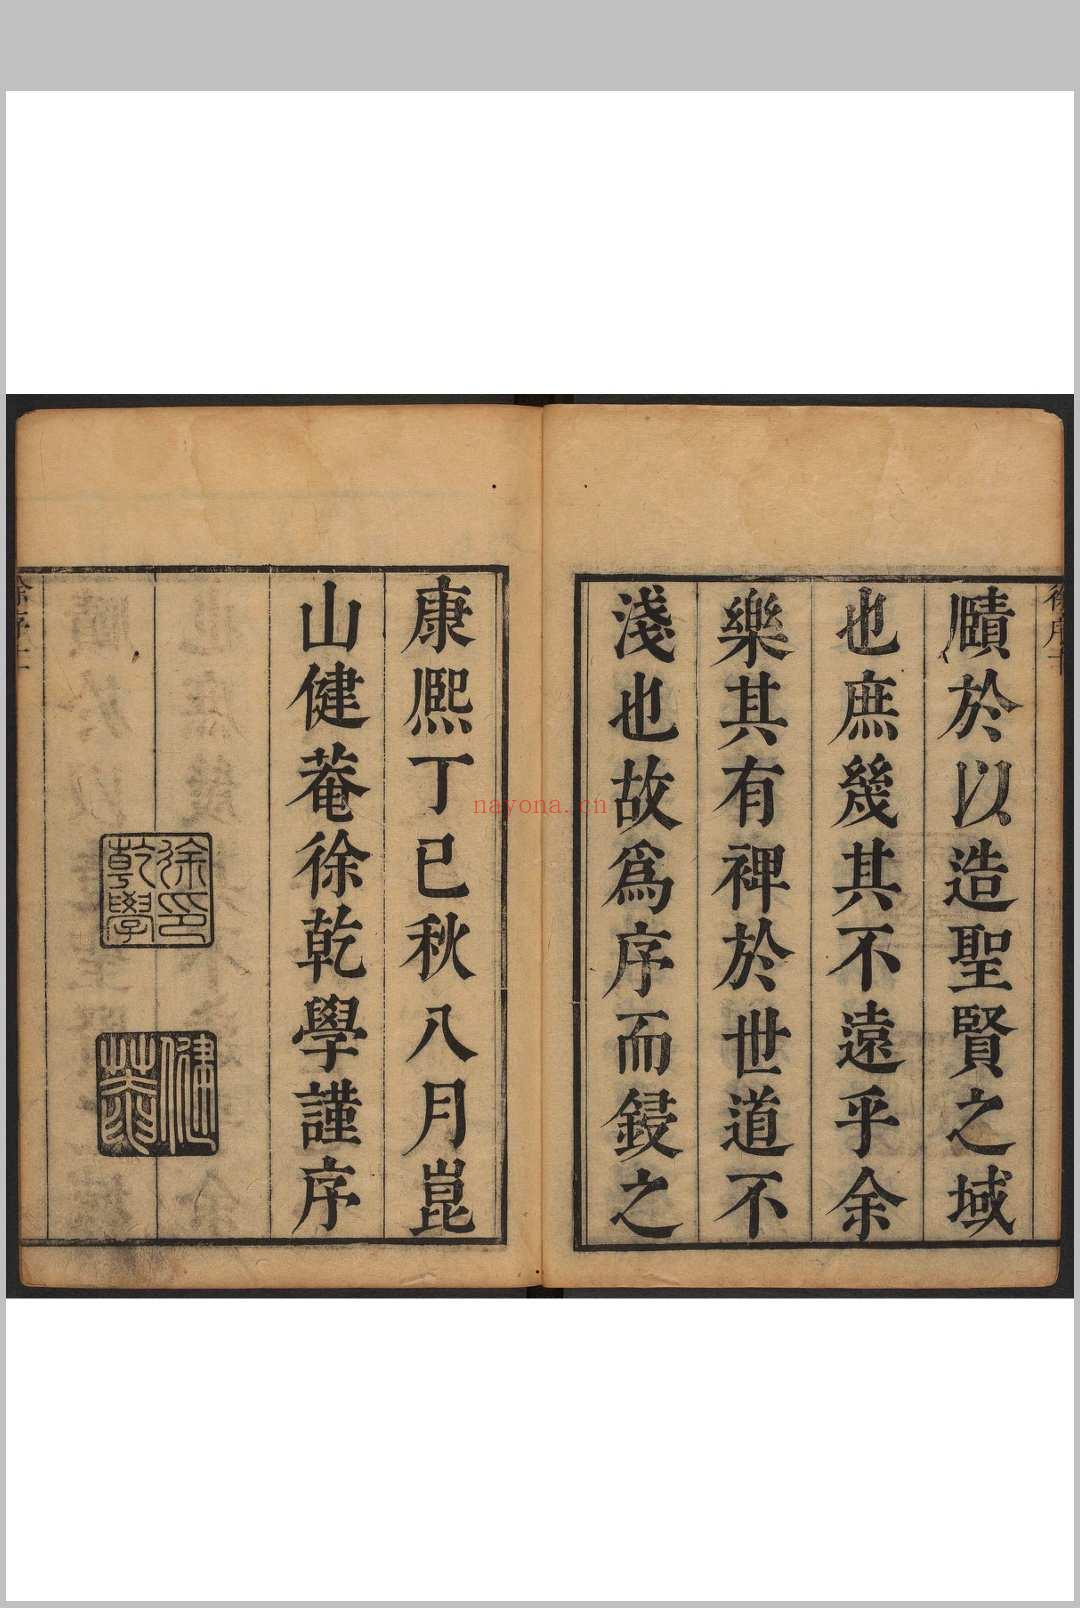 賾於以造聖賢之域
也庶幾其不遠乎余
樂其有裨於世道不
淺也故爲序而鋟之
康熙丁巳秋八月崑
山健菴徐乾學謹序
徐印
乾學
健
菴
nayona.cn